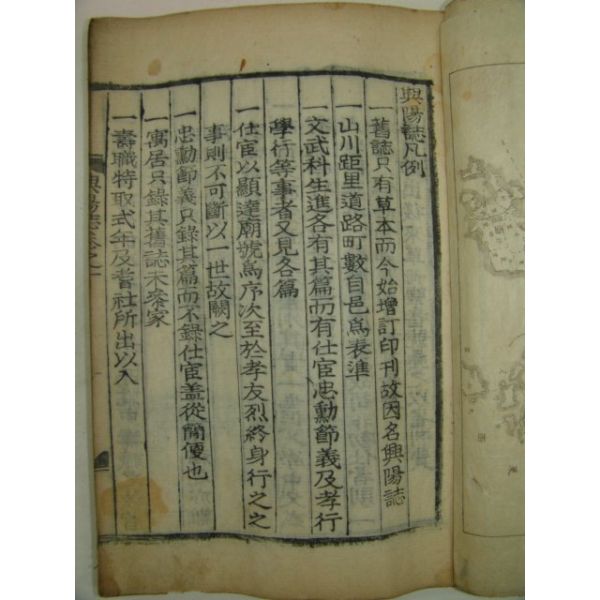 興陽誌凡例
一舊誌只有草本而今始增訂印刊故因名興陽誌
一山川距里道路町數自邑爲表準
一文武科生進各有其篇而有仕宦忠勳節義及孝行
學行等事者又見各篇
一仕宦以顯達廟號爲序次至於孝友烈終身行之之
事則不可斷以一世故闕之
一忠勳節義只錄其篇而不録仕宦盖從簡便也
一寓居只錄其舊誌未泰家
一壽職特取式年及耆社所出以入
興陽誌卷之一